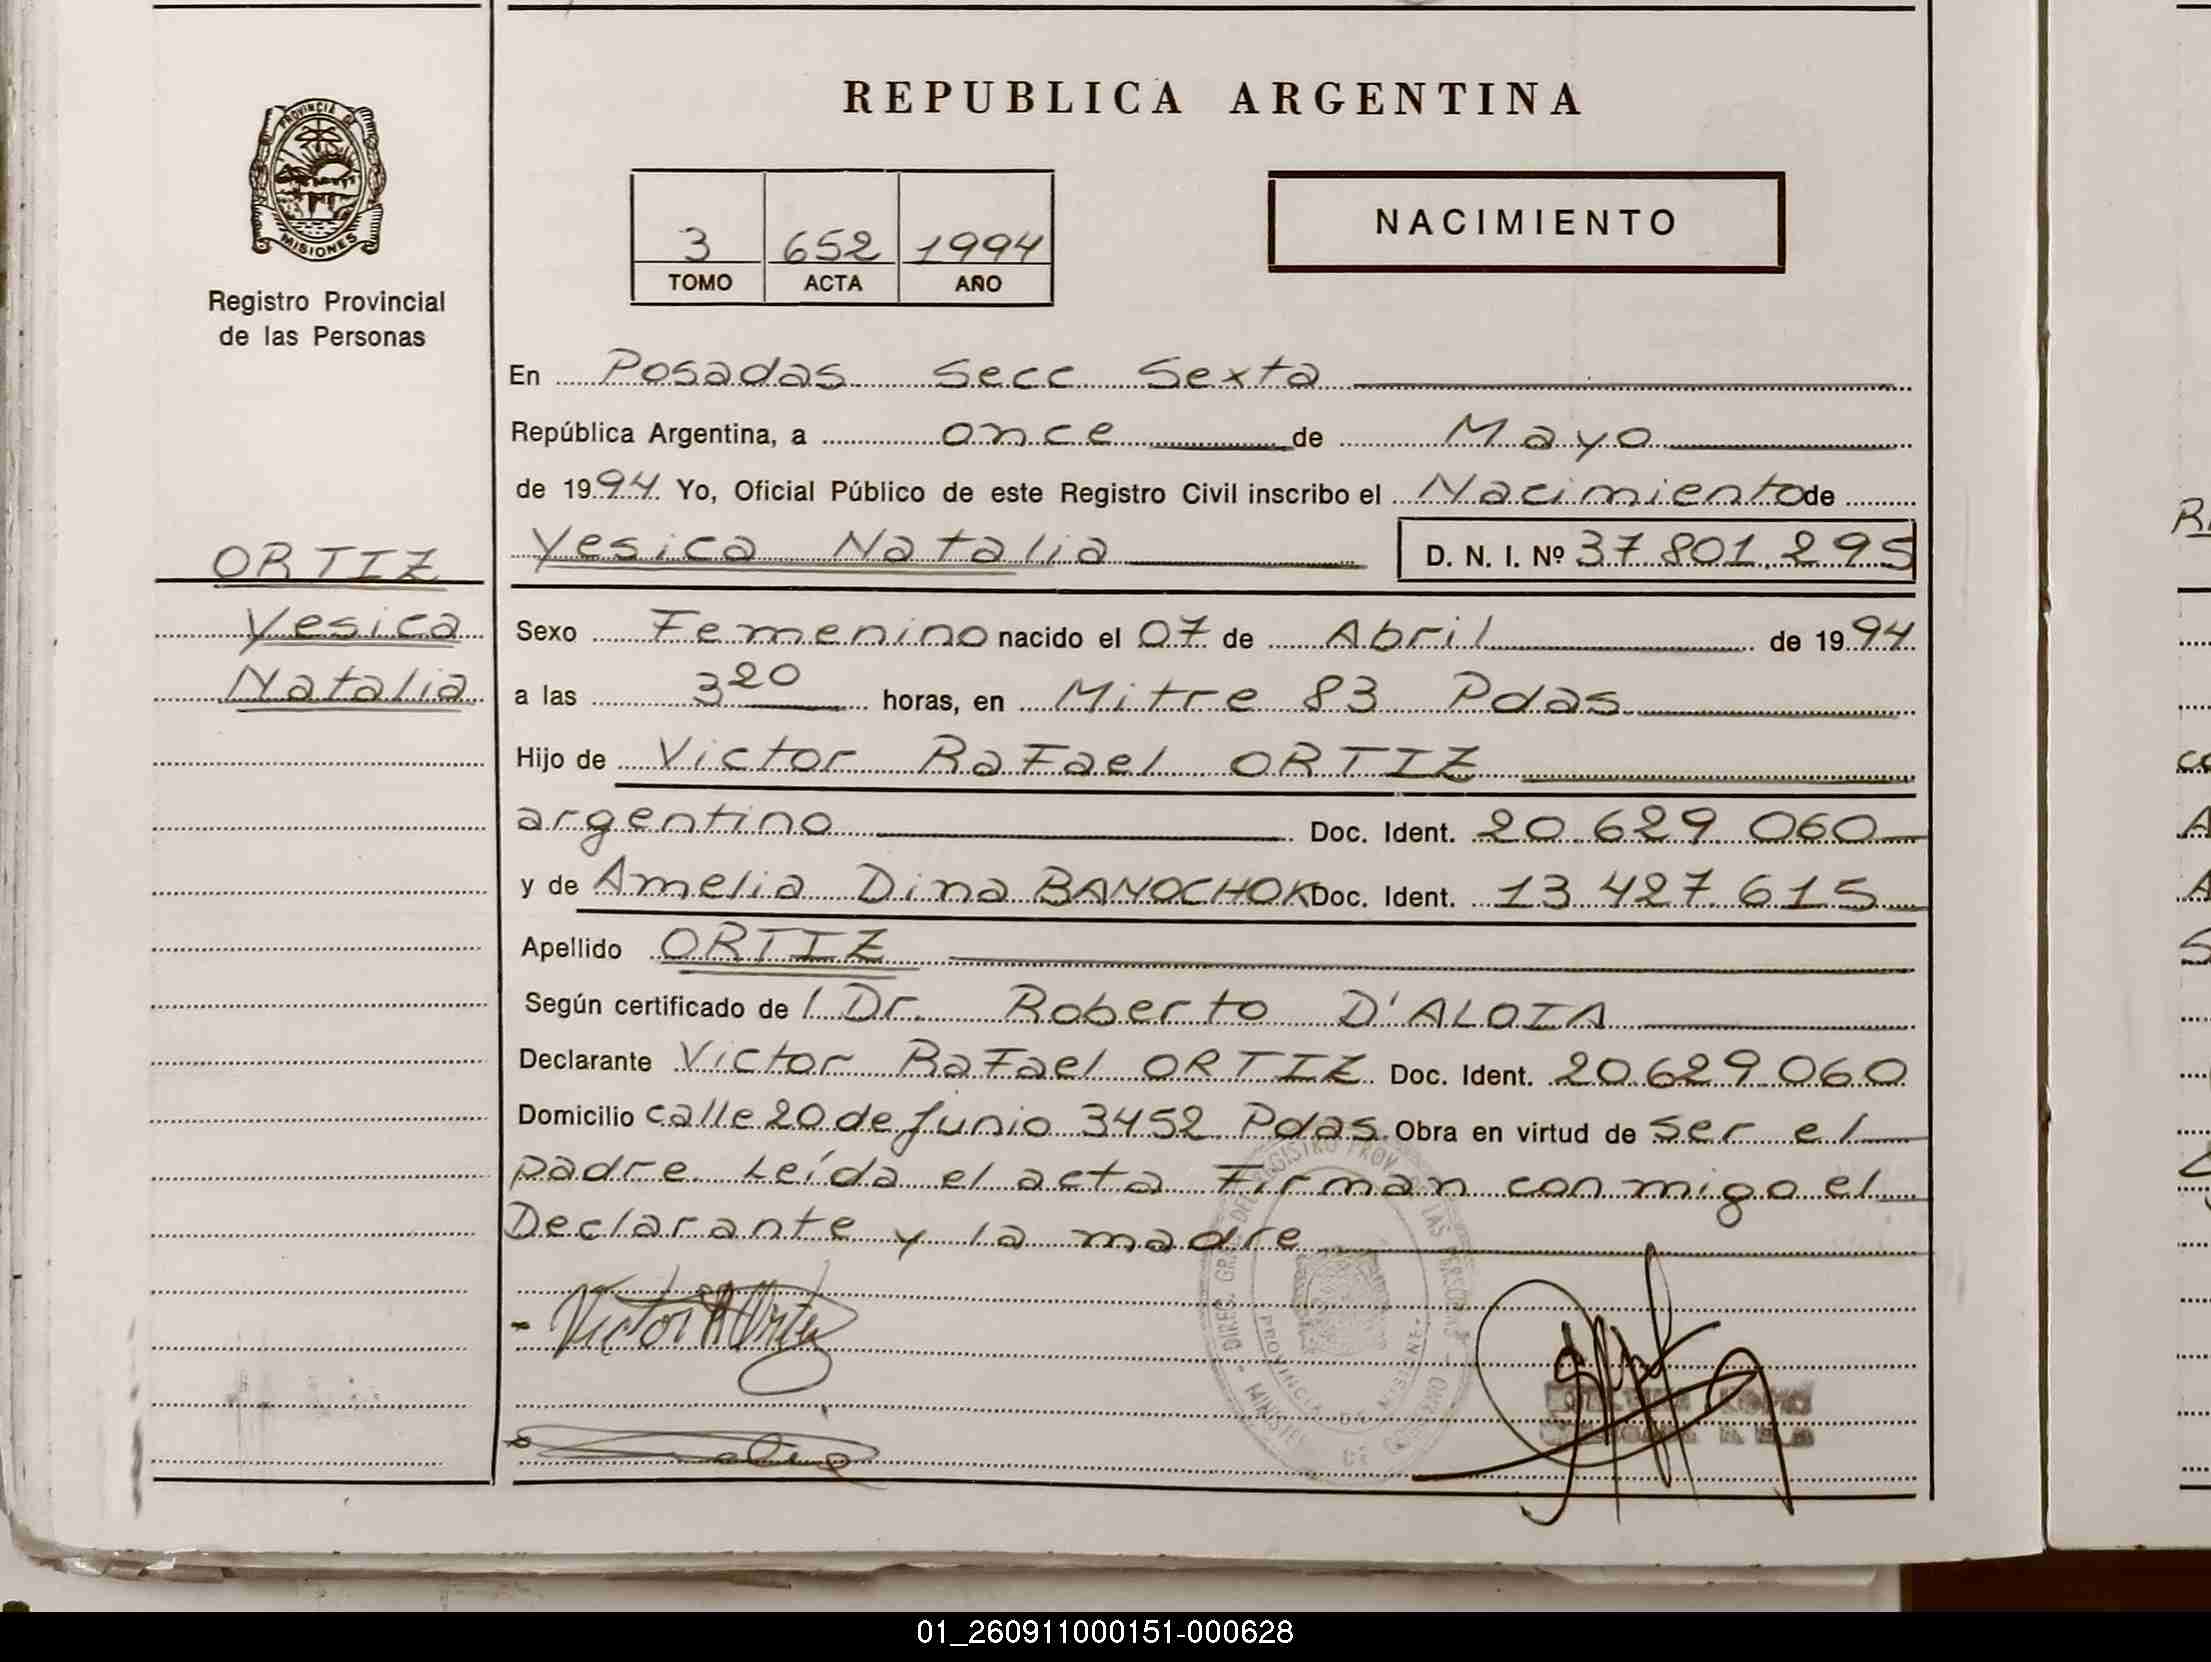 REPUBLICA ARGENTINA
PROVINCIA DE
MISIONES
Registro Provincial
de las Personas
3 652 1994
TOMO ACTA AÑO
NACIMIENTO
En Posadas Secc Sexta
República Argentina, a once de Mayo
de 1994 Yo, Oficial Público de este Registro Civil inscribo el Nacimiento de
Yesica Natalia D. N. I. Nº 37.801.295
ORTIZ
Yesica
Natalia
Sexo Femenino nacido el 07 de Abril de 1994
a las 3 20 horas, en Mitre 83 Pdas
Hijo de Victor Rafael ORTIZ
argentino Doc. Ident. 20.629.060
y de Amelia Dina BANOCHOK Doc. Ident. 13.427.615
Apellido ORTIZ
Según certificado de l Dr. Roberto D'ALOIA
Declarante Victor Rafael ORTIZ Doc. Ident. 20.629.060
Domicilio calle 20 de Junio 3452 Pdas. Obra en virtud de ser el
padre. Leída el acta Firman conmigo el
Declarante y la madre
Victor R Ortiz
DIREC. GRAL. DEL REGISTRO PROV. DE LAS PERSONAS
PROVINCIA DE MISIONES
01_260911000151-000628